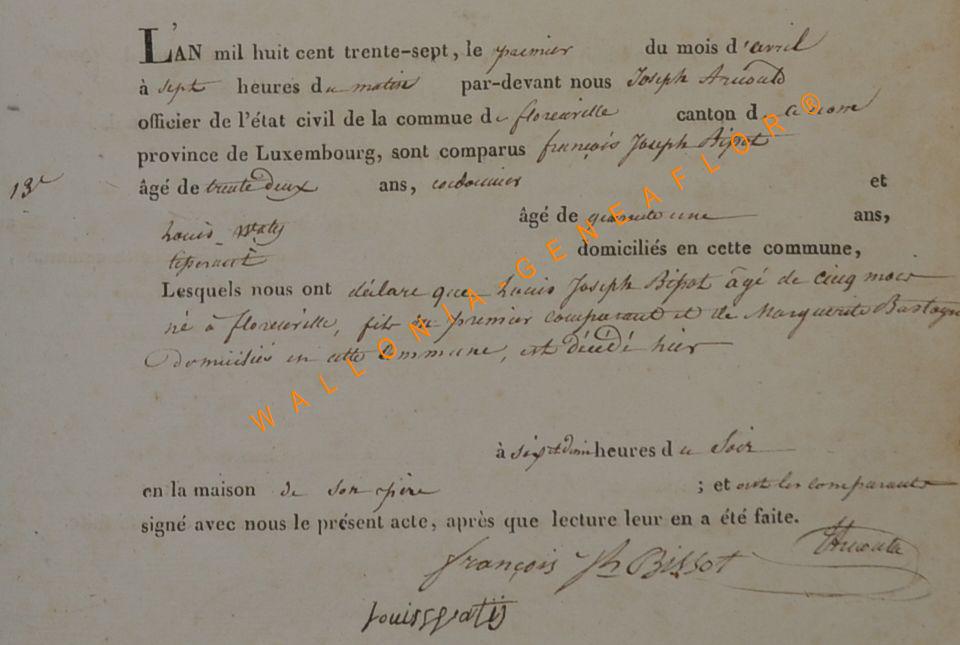 L'AN mil huit cent trente-sept, le premier du mois d'avril
à sept heures du matin par-devant nous Joseph Arnould
officier de l'état civil de la commue de florenville canton d ce nom
province de Luxembourg, sont comparus françois Joseph Bipot
13e âgé de trente deux ans, cordonnier et
Louis Watÿ âgé de quarante une ans,
domiciliés en cette commune,
Lesquels nous ont déclaré que Louis Joseph Bipot âgé de cinq mois
né à florenville, fils du premier comparant et de Marguerite Bastogn
Domiciliés en cette Commune, est décédé hier
à six et demi heures du Soir
en la maison de son père ; et ont les comparants
signé avec nous le présent acte, après que lecture leur en a été faite.
françois Jh Bissot Arnould
Louis Watÿ
WALLONIA-GENEAFLOR®